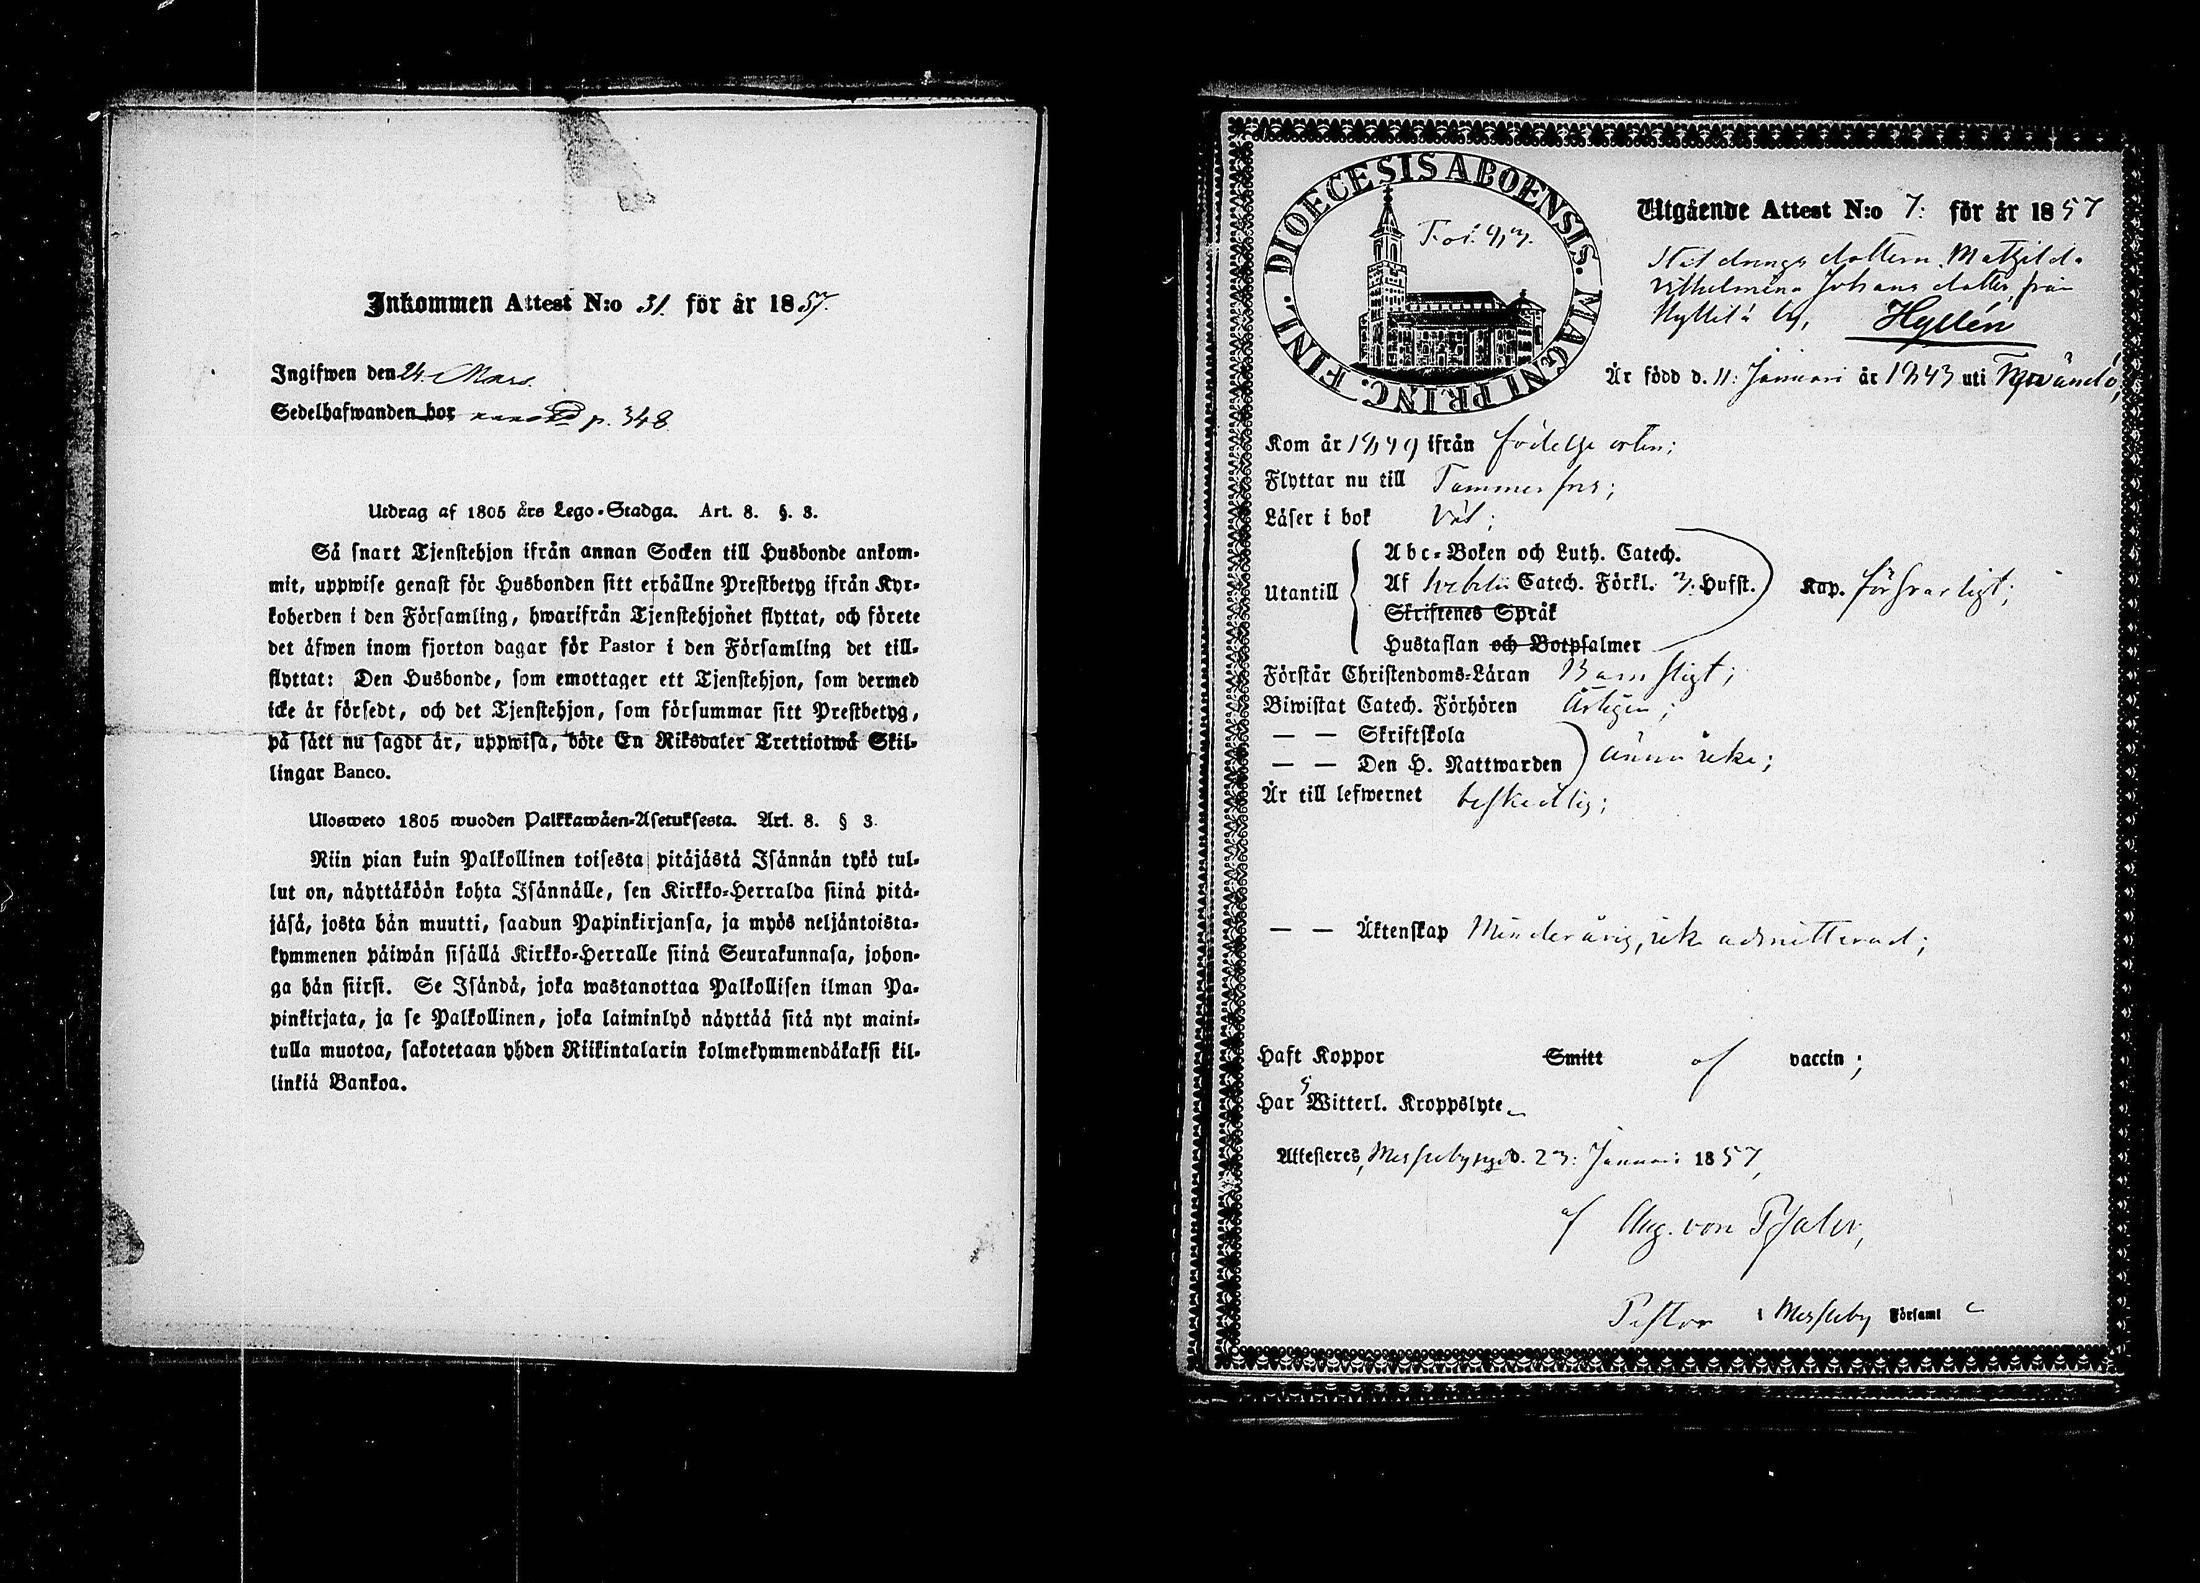 Inkommen Attest N:o 31. för år 1857.
Ingifwen den 24. Mars.
Sedelhafwanden bor p. 348
Utdrag af 1805 års Lego-Stadga. Art. 8. §. 3.
Så snart Tjenstehjon ifrån annan Socken till Husbonde ankom-
mit, uppwise genast för Husbonden sitt erhållne Prestbetyg ifrån Kyr-
koherden i den Församling, hwarifrån Tjenstehjonet flyttat, och förete
det äfwen inom fjorton dagar för Pastor i den Församling det till-
flyttat: Den Husbonde, som emottager ett Tjenstehjon, som dermed
icke är försedt, och det Tjenstehjon, som försummar sitt Prestbetyg,
på sätt nu sagdt är, uppwisa, böte En Riksdaler Trettiotwå Skil-
lingar Banco.
Ulosweto 1805 wuoden Palkkawäen-Asetuksesta. Art. 8. § 3.
Niin pian kuin Palkollinen toisesta pitäjästä Isännän tykö tul-
lut on, näyttäköön kohta Isännälle, sen Kirkko-Herralda siinä pitä-
jäsä, josta hän muutti, saadun Papinkirjansa, ja myös neljäntoista-
kymmenen päiwän sisällä Kirkko-Herralle siinä Seurakunnasa, johon-
ga hän siirst. Se Isändä, joka wastanottaa Palkollisen ilman Pa-
pinkirjata, ja se Palkollinen, joka laiminlyö näyttää sitä nyt maini-
tulla muotoa, sakotetaan yhden Riikintalarin kolmekymmendäkaksi kil-
linkiä Bankoa.
DIOECESIS ABOENSIS. MAGNI PRINC. FINL.
Utgående Attest N:o 7: för år 1857
Statdrings dottern Mathilda
Vilhelmina Johans dotter från
by, Hyllén
Är född d. 11: Januari år 1843 uti Tyrvändö,
Kom år 1849 ifrån födelse orten;
Flyttar nu till Tammerfors;
Läser i bok Väl;
Utantill
Abc-Boken och Luth. Catech.
Af Svebelii Catech. Förkl. 3: Hufst. Kap. försvarligt;
Skriftenes Språk
Hustaflan och Botpsalmer
Förstår Christendoms-Läran Barnsligt;
Biwistat Catech. Förhören Årligen;
— — Skriftskola
— — Den H. Nattwarden ännu icke;
Är till lefwernet beskedlig;
— — Äktenskap Minderårig, icke admitterad;
Haft Koppor Smitt af vaccin;
Har Witterl. Kroppslyte
Attesteres, Messuby d. 23: Januari 1857,
af Aug. von Pfaler,
Pastor i Messuby Församl